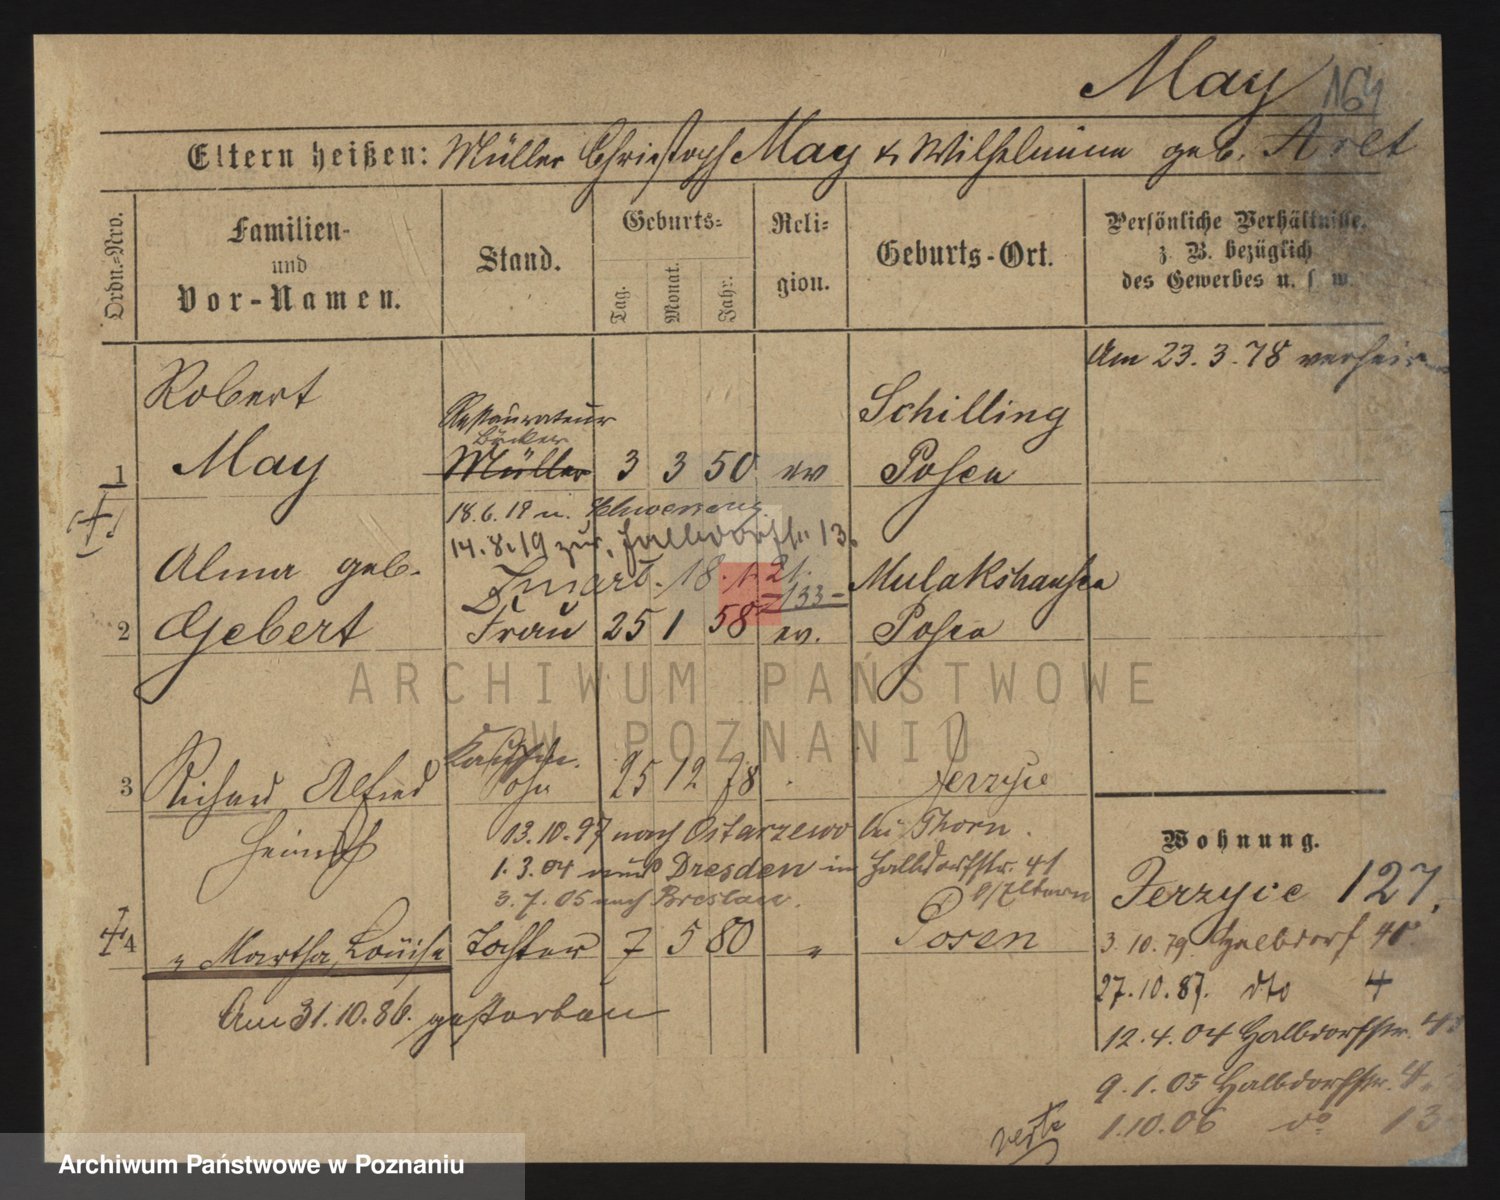 May
164
Eltern heißen: Müller Christoph May & Wilhelmine geb. Arlt
Ordn.-Nro.
Familien-
und
Vor-Namen.
Stand.
Geburts-
Tag.
Monat.
Jahr.
Reli-
gion.
Geburts-Ort.
Persönliche Verhältnisse,
z. B. bezüglich
des Gewerbes u. s. w.
Am 23.3.78 verheir
Robert
Restaurateur
Bäcker
Schilling
1 May Müller 3 3 50 ev Posen
18.6.19 n.
14.8.19 zur. Halbdorfstr 13.
18.1.21.
133
Alma geb. Mulakshausen
2 Gebert Frau 25 1 58 ev. Posen
3 Richard Alfred Sohn 25 12 78 Jerzyce
Heinrich
13.10.97 nach Ostarzewo bei Thorn.
1.3.04 aus Dresden in Halbdorfstr. 41
b/Eltern
3.7.05 nach Breslau.
4 " Martha, Louise Tochter 7 5 80 " Posen
Am 31.10.86. gestorben
Wohnung.
Jerzyce 127.
3.10.79. Halbdorf
27.10.87. dto 4
12.4.04 Halbdorfstr.
9.1.05 Halbdorfstr.
1.10.06 do 13
ARCHIWUM PAŃSTWOWE
W POZNANIU
Archiwum Państwowe w Poznaniu